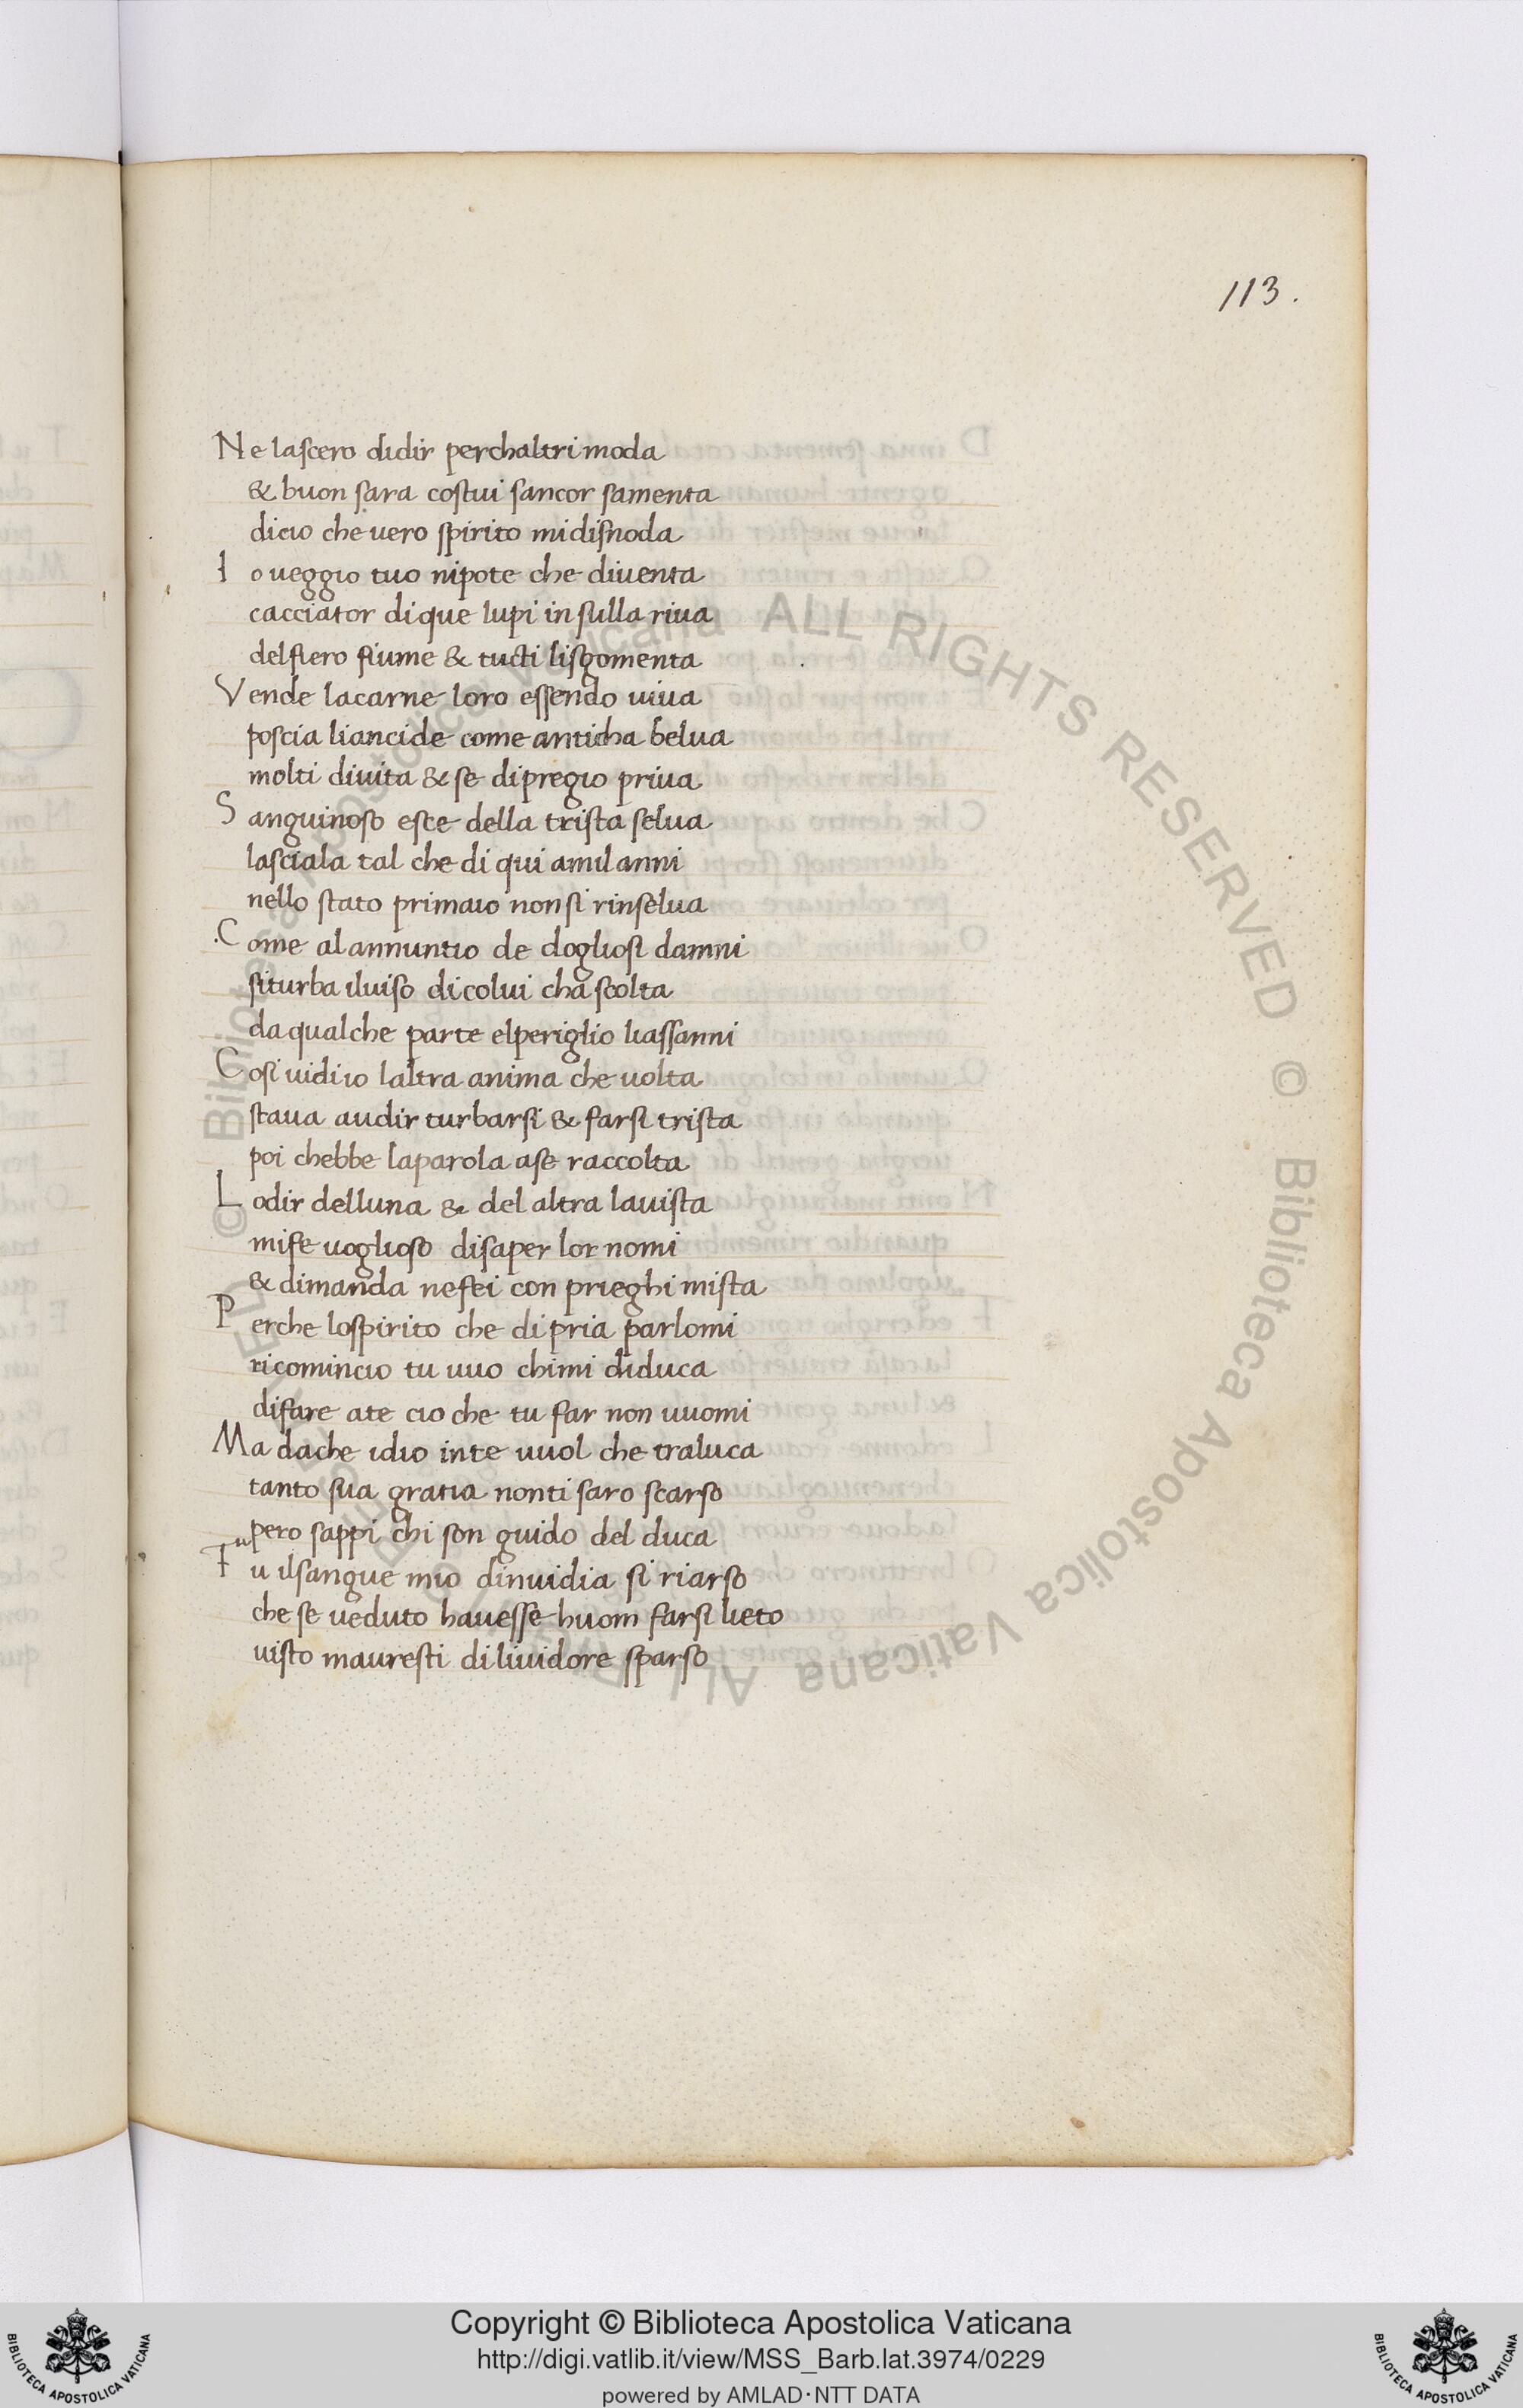 113.
Ne lascero didir perchaltri moda
& buon sara costui sancor samenta
dicio che uero spirito midisnoda
Io ueggio tuo nipote che diuenta
cacciator dique lupi in sulla riua
delfiero fiume & tucti lisgomenta
Vende lacarne loro essendo uiua
poscia liancide come anticha belua
molti diuita & se dipregio priua
Sanguinoso esce della trista selua
lasciala tal che di qui amil anni
nello stato primaio nonsi rinselua
.Come al annuntio de dogliosi damni
siturba iluiso di colui cha scolta
da qualche parte elperiglio liassanni
Cosi uidi io laltra anima che uolta
staua audir turbarsi & farsi trista
poi chebbe laparola ase raccolta
Lodir delluna & del altra lauista
mife uoglioso disaper lor nomi
& dimanda nefei con prieghi mista
Perche lospirito che di pria parlomi
ricomincio tu uuo chimi diduca
difare ate cio che tu far non uuomi
Ma dache idio inte uuol che traluca
tanto sua gratia nonti saro scarso
pero sappi chi son guido del duca
Fu ilsangue mio dinuidia si riarso
che se ueduto hauesse huom farsi lieto
uisto mauresti di liuidore sparso
© Biblioteca Apostolica Vaticana ALL RIGHTS RESERVED © Biblioteca Apostolica Vaticana
Copyright © Biblioteca Apostolica Vaticana
http://digi.vatlib.it/view/MSS_Barb.lat.3974/0229
powered by AMLAD·NTT DATA
BIBLIOTECA APOSTOLICA VATICANA
BIBLIOTECA APOSTOLICA VATICANA